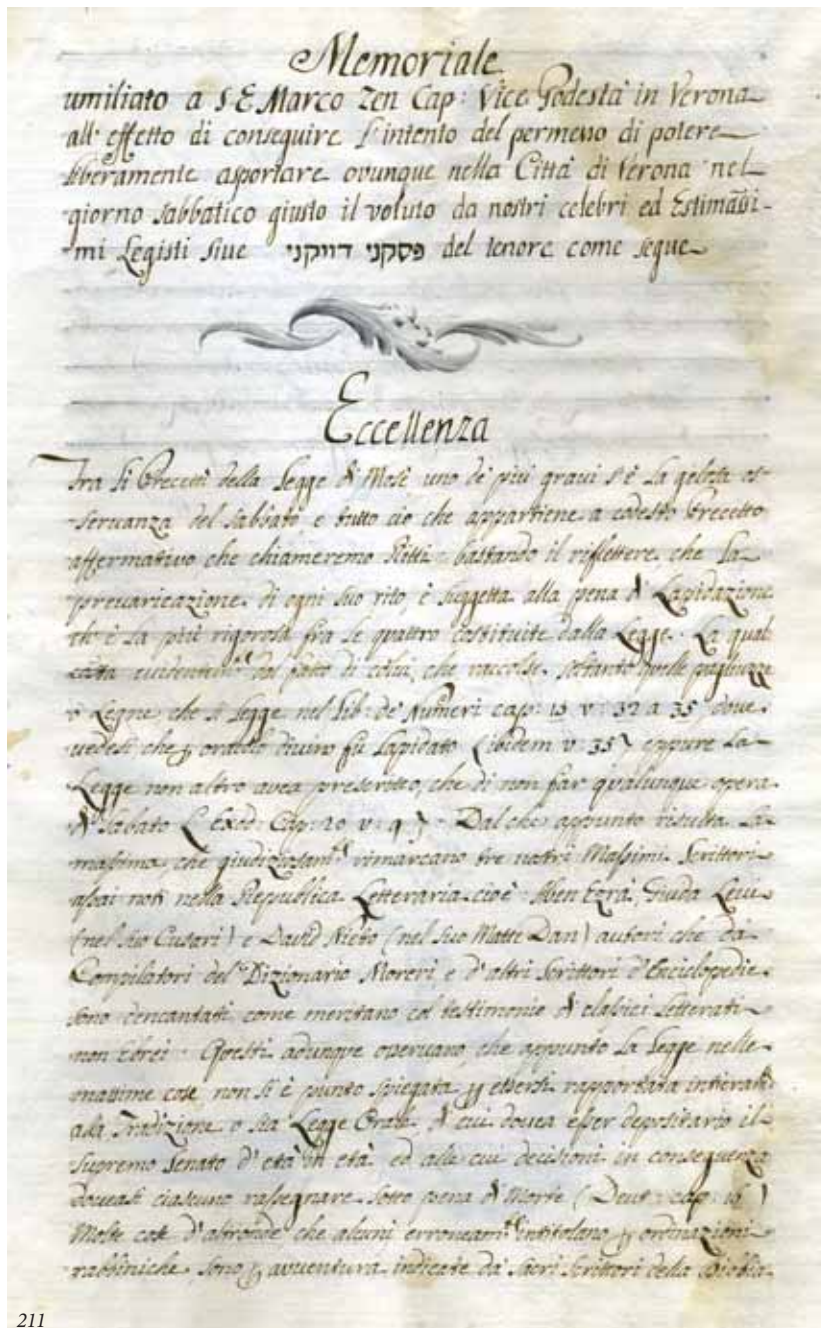 Memoriale
umiliato a S E Marco Zen Cap: Vice Podestà in Verona
all' effetto di conseguire l'intento del permesso di potere
liberamente asportare ovunque nella Città di Verona nel
giorno sabbatico giusto il voluto da nostri celebri ed Estimassi-
mi Legisti sive פסקני דווקני del tenore come segue
Eccellenza
Tra li Precetti della Legge di Mosè uno de' più gravi s'è la gelosa os-
servanza del Sabbato, e tutto ciò che appartiene a codesto Precetto
affermativo che chiameremo Ritti: bastando il riflettere che la
prevaricazione di ogni suo rito, è suggetta alla pena di Lapidazione
ch' è la più rigorosa fra le quattro costituite dalla Legge. La qual
evidentem.te dal fatto di colui, che raccolse soltanto quelle pagliuzze
o Legne che si legge nel lib: de' Numeri cap: 15 v: 32 a 35, dove
vedesi che oracolo divino fù Lapidato (ibidem v: 35) eppure la
Legge non altro avea prescritto, che di non far qualunque opera
di Sabato (Exod: Cap: 20 v: 9). Dal che appunto risulta la
massima, che giudiziosam.te rimarcano tre nostri Massimi Scrittori
assai noti nella Republica Letteraria cioè Aben Ezra, Giuda Levi
(nel suo Cusari) e David Nieto (nel suo Matte Dan) autori che da
Compilatori del Dizionario Moreri, e d'altri Scrittori d'Enciclopedie
sono decantati come meritano col testimonio di classici Letterati
non Ebrei. Questi adunque osservano, che appunto la Legge nelle
massime cose non si è punto spiegata essersi rapportata intieram.te
alla Tradizione o sia Legge Orale di cui dovea esser depositario il
Supremo Senato d'età in età ed alle cui decisioni in conseguenza
doveasi ciascuno rassegnare sotto pena di Morte (Deut: cap: )
Molte cose d'altronde che alcuni erroneam.te intitolano ordinazioni
rabbiniche, sono avventura indicate da' Sacri Scrittori della Bibbia
211